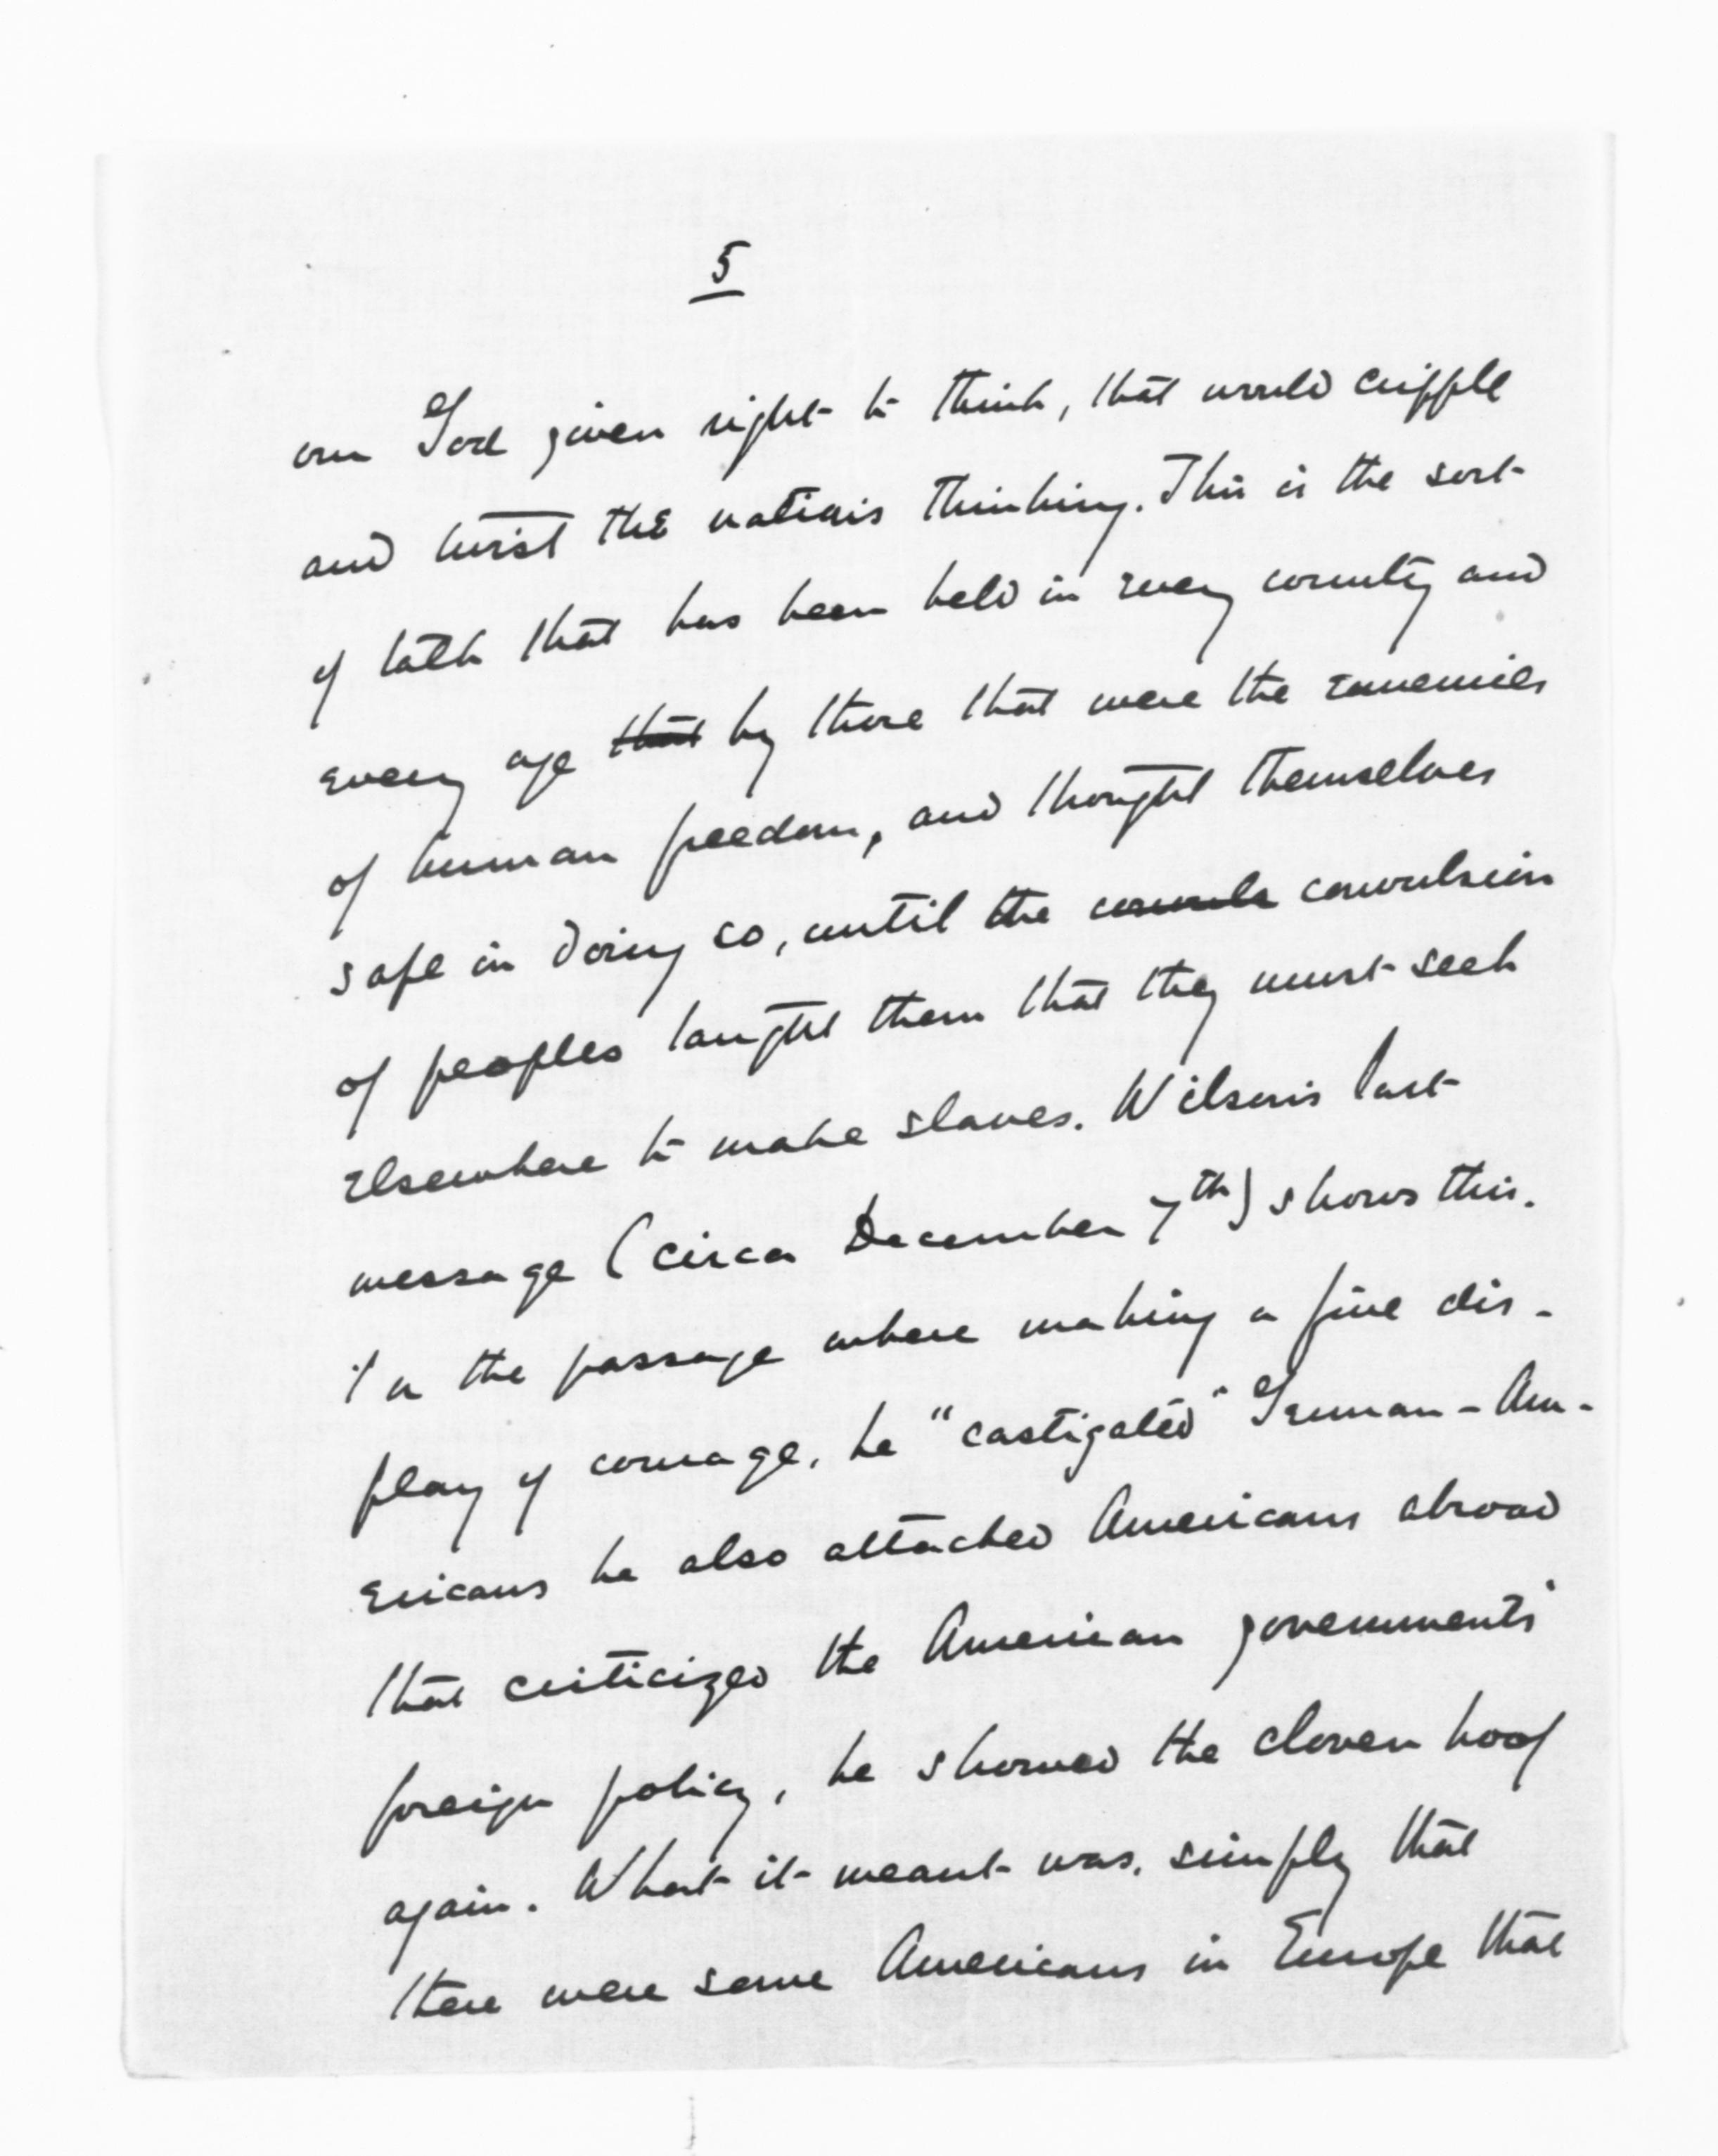 5
our God given right to think, that would cripple
and twist the nation's thinking. This is the sort
of talk that has been held in every country and
every age that by those that were the enemies
of human freedom, and thought themselves
safe in doing so, until the convuls convulsion
of peoples taught them that they must seek
elsewhere to make slaves. Wilson's last
message (circa December 7th) shows this.
In the passage where making a fine dis-
play of courage, he "castigated" German-Am-
ericans he also attacked Americans abroad
that criticized the American governments'
foreign policy, he showed the cloven hoof
again. What it meant was, simply that
there were some Americans in Europe that